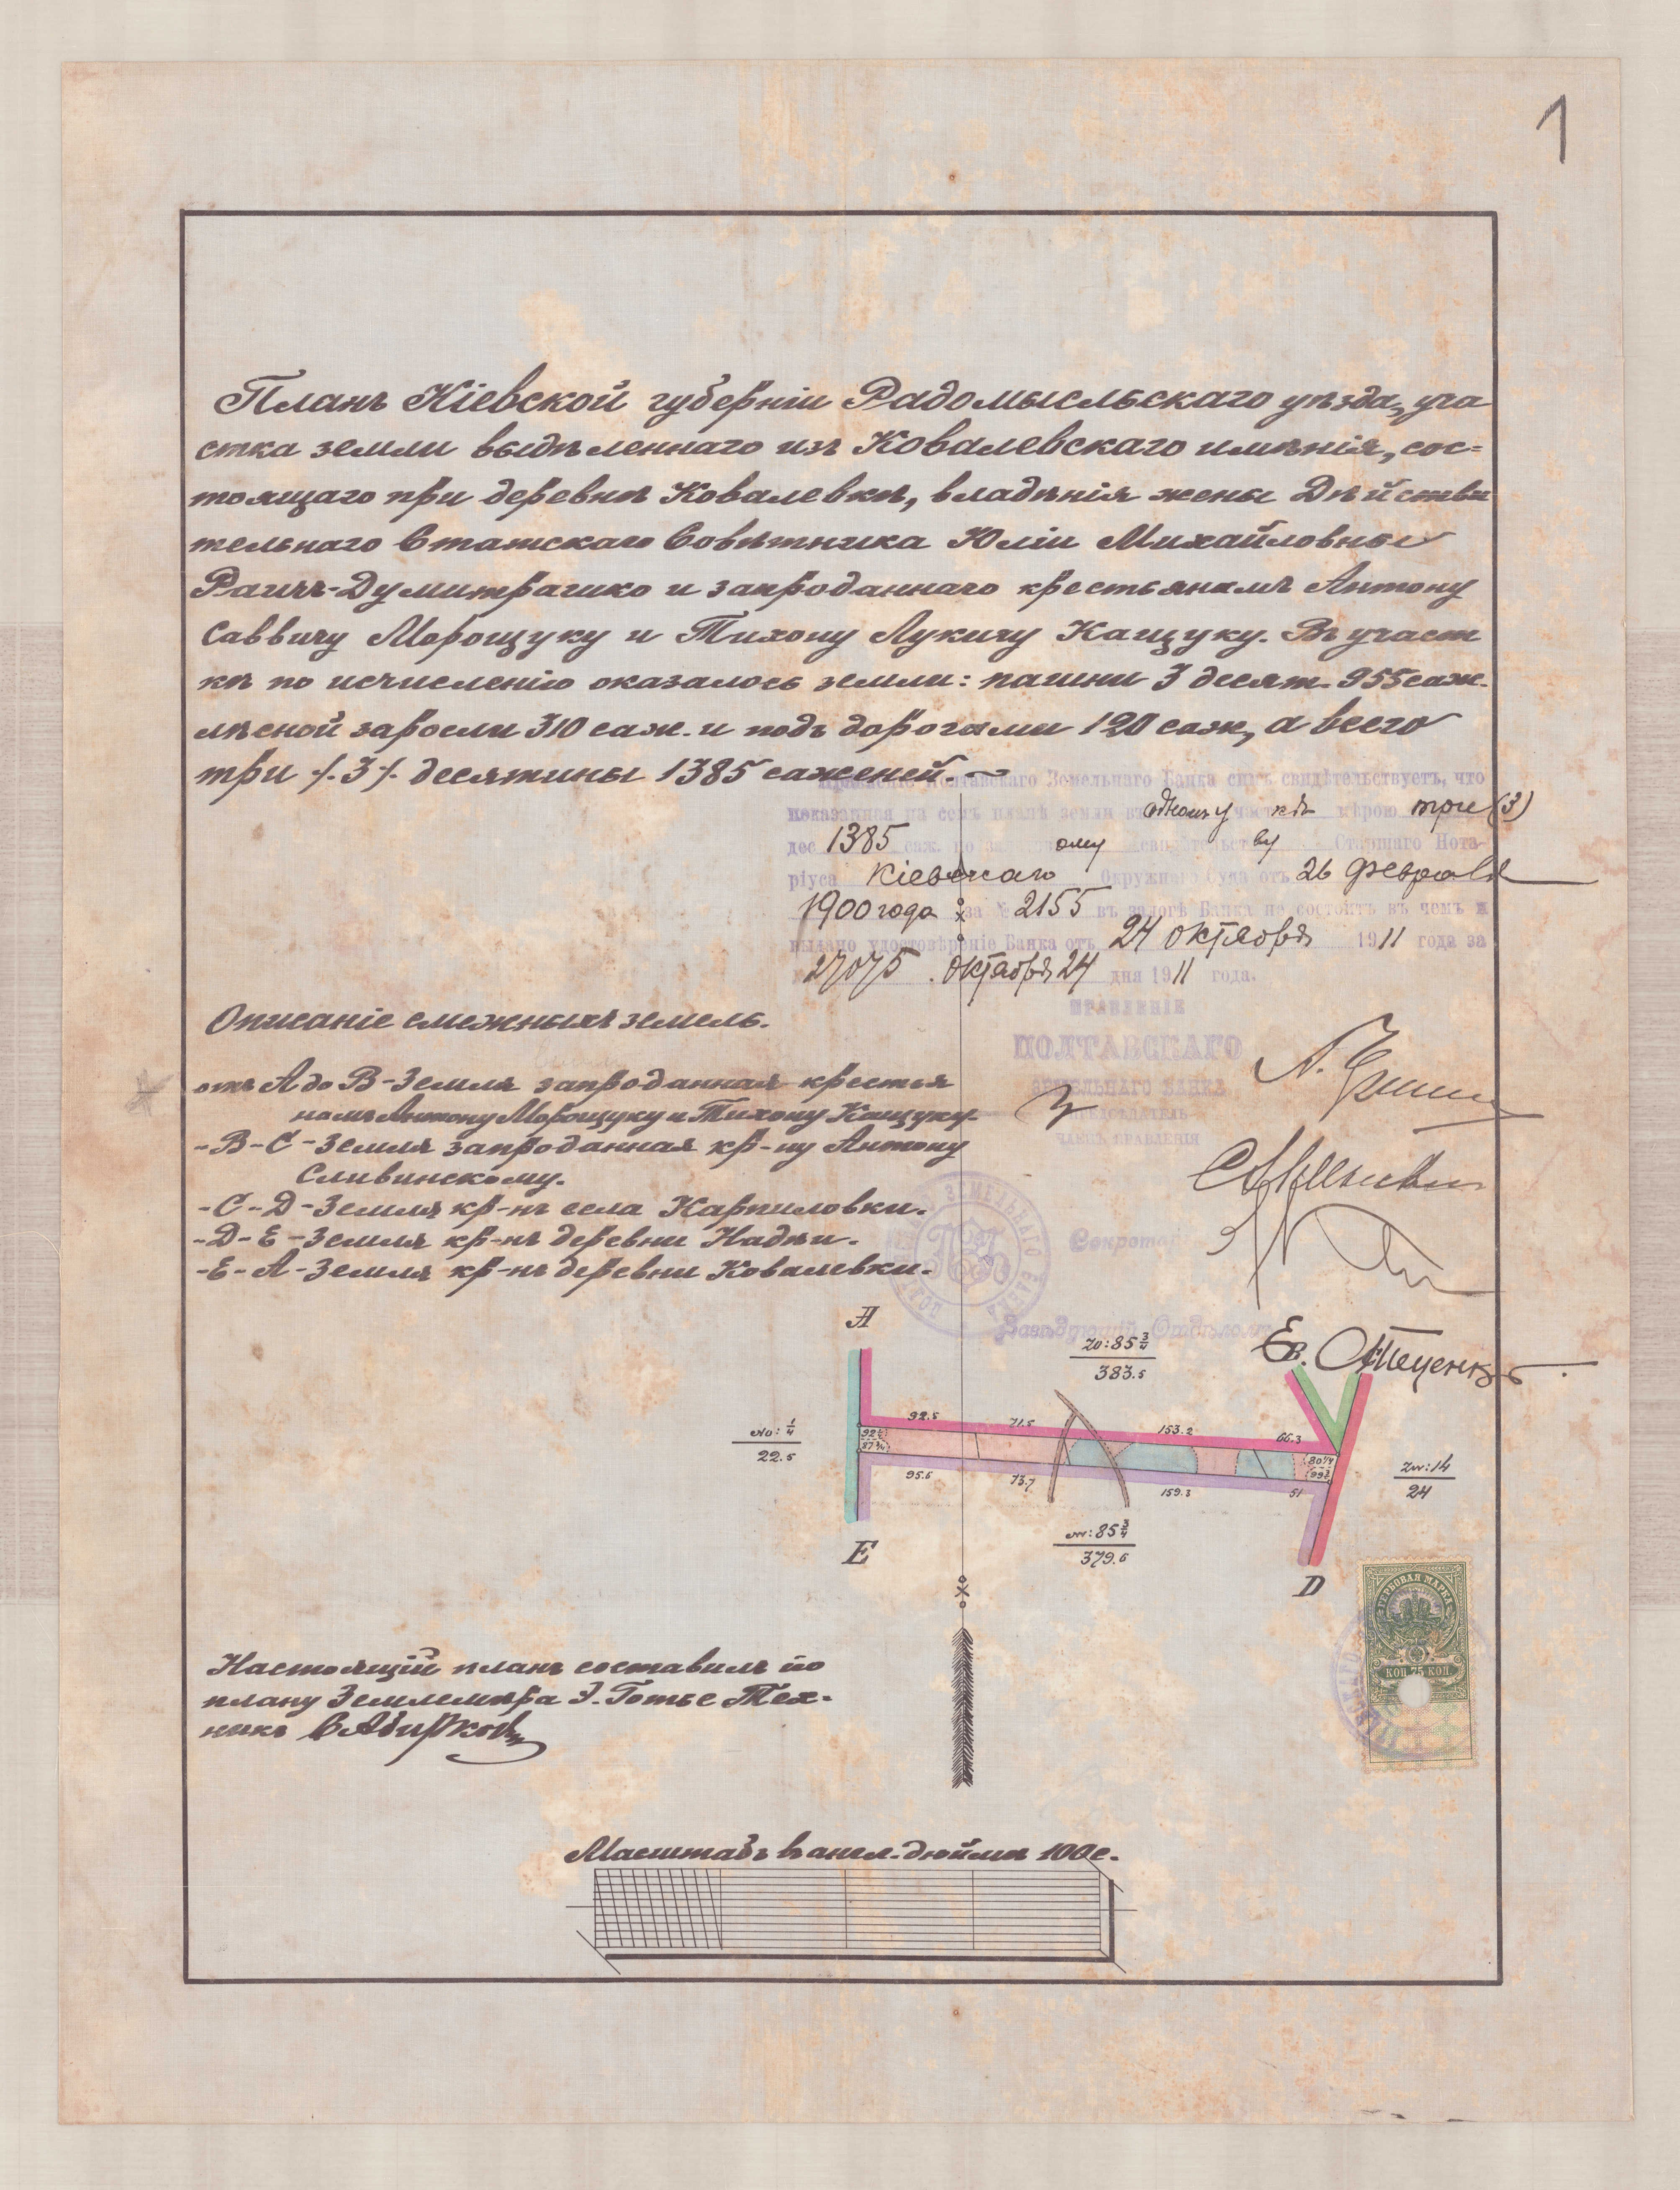 1
Планъ Кіевской губерніи Радомысльскаго уѣзда, уча
стка земли выдѣленнаго изъ Ковалевскаго имѣнія, сос-
тоящаго при деревнѣ Ковалевкѣ, владѣнія жены Дѣйстви
тельнаго Статскаго Совѣтника Юліи Михайловны
Раичъ-Думитрашко и запроданнаго крестьянамъ Антону
Саввичу Морощуку и Тихону Лукичу Кащуку. Въ участ
кѣ по исчисленію оказалось земли: пашни 3 десят. 955 саж.
лѣсной заросли 310 саж. и подъ дорогами 120 саж, а всего
три ./. 3 ./. десятины 1385 саженей.
Правленіе Полтавскаго Земельнаго Банка симъ свидѣтельствуетъ, что
показанная на семъ планѣ земля въ одному участкѣ мѣрою три (3)
дес 1385 саж. по ому свидѣтельству Старшаго Нота-
ріуса Кіевскаго Окружнаго Суда отъ 26 февраля
1900 года за № 2155 въ залогѣ Банка не состоитъ въ чемъ и
выдано удостовѣреніе Банка отъ 24 октября 1911 года за
27075. Октября 24 дня 1911 года.
ПРАВЛЕНІЕ
ПОЛТАВСКАГО
ЗЕМЕЛЬНАГО БАНКА
ПРЕДСѢДАТЕЛЬ
ЧЛЕНЪ ПРАВЛЕНІЯ
Секретарь
Завѣдующій Отдѣломъ
Описаніе смежныхъ земель.
отъ А до В - Земля запроданная крестья
намъ Антону Морощуку и Тихону Кащуку.
- В - С - Земля запроданная кр-ну Антону
Сливинскому.
- С - Д - Земля кр-нъ села Карпиловки.
- Д - Е - Земля кр-нъ деревни Надѣи.
- Е - А - Земля кр-нъ деревни Ковалевки.
A
zo: 85 3/4
383.5
No: 1/4
22.5
92.5
71.5
153.2
66.3
92 1/4
87 3/4
80 1/4
99 3/4
95.6
73.7
159.3
51
zw: 14
24
85 3/4
379.6
E
D
ГЕРБОВАЯ МАРКА
75
КОП 75 КОП
Настоящій планъ составилъ по
плану Землемѣра Э. Готье Тех-
никъ
Масштабъ въ англ. дюймѣ 100 с.